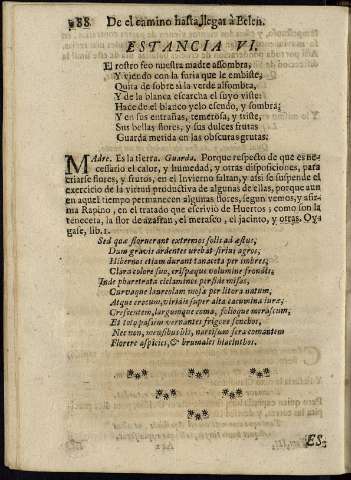 188. De el camino hasta llegar à Belen.
ESTANCIA VI.
El rostro feo nuestra madre assombra,
Y viendo con la furia que le embiste,
Quita de sobre si la verde alfombra,
Y de la blanca escarcha el suyo viste:
Hace de el blanco yelo escudo, y sombra;
Y en sus entrañas, temerosa, y triste,
Sus bellas flores, y sus dulces frutas
Guarda metida en las obscuras grutas.
Madre. Es la tierra. Guarda. Porque respecto de que es ne-
cessario el calor, y humedad, y otras disposiciones, para
criarse flores, y frutos, en el Invierno faltan, y assi se suspende el
exercicio de la virtud productiva de algunas de ellas, porque aun
en aquel tiempo permanecen algunas flores, segun vemos, y afir-
ma Rapino, en el tratado que escrivió de Huertos; como son la
tenecera, la flor de azafran, el merasco, el jacinto, y otras. Oyga-
gase, lib. 1.
Sed quæ floruerant extremos solis ad æstus,
Dum gravis ardentes urebat sirius agros;
Hibernos etiam durant tanaceta per imbres;
Clara colore suo, crispæque volumine frondis;
Inde pharetrata ciclaminos perside missas,
Curvaque laureolam mosa per litora natum,
Atque crocum, viridis super alta cacumina
Crescentem, largumque comâ, folioque
Et
Nec non, mensibus iis, narcisum sera comantem
Florere aspicies, & brumales hiacinthos.
ES-